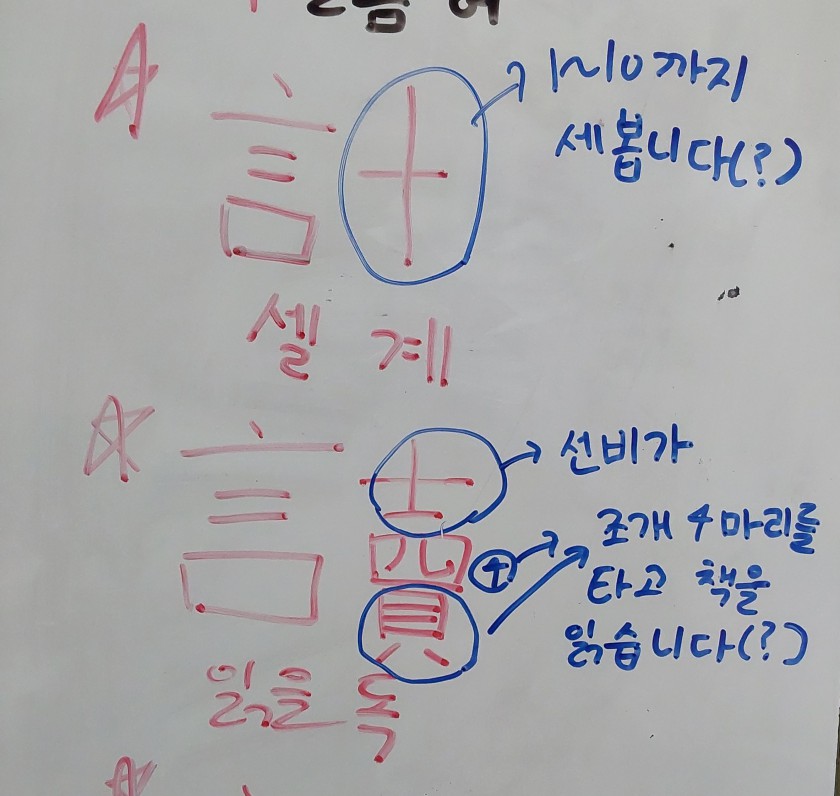 計 1~10까지
세봅니다(?)
셀 계
讀 선비가
4 조개 4마리를
타고 책을
읽습니다(?)
읽을 독